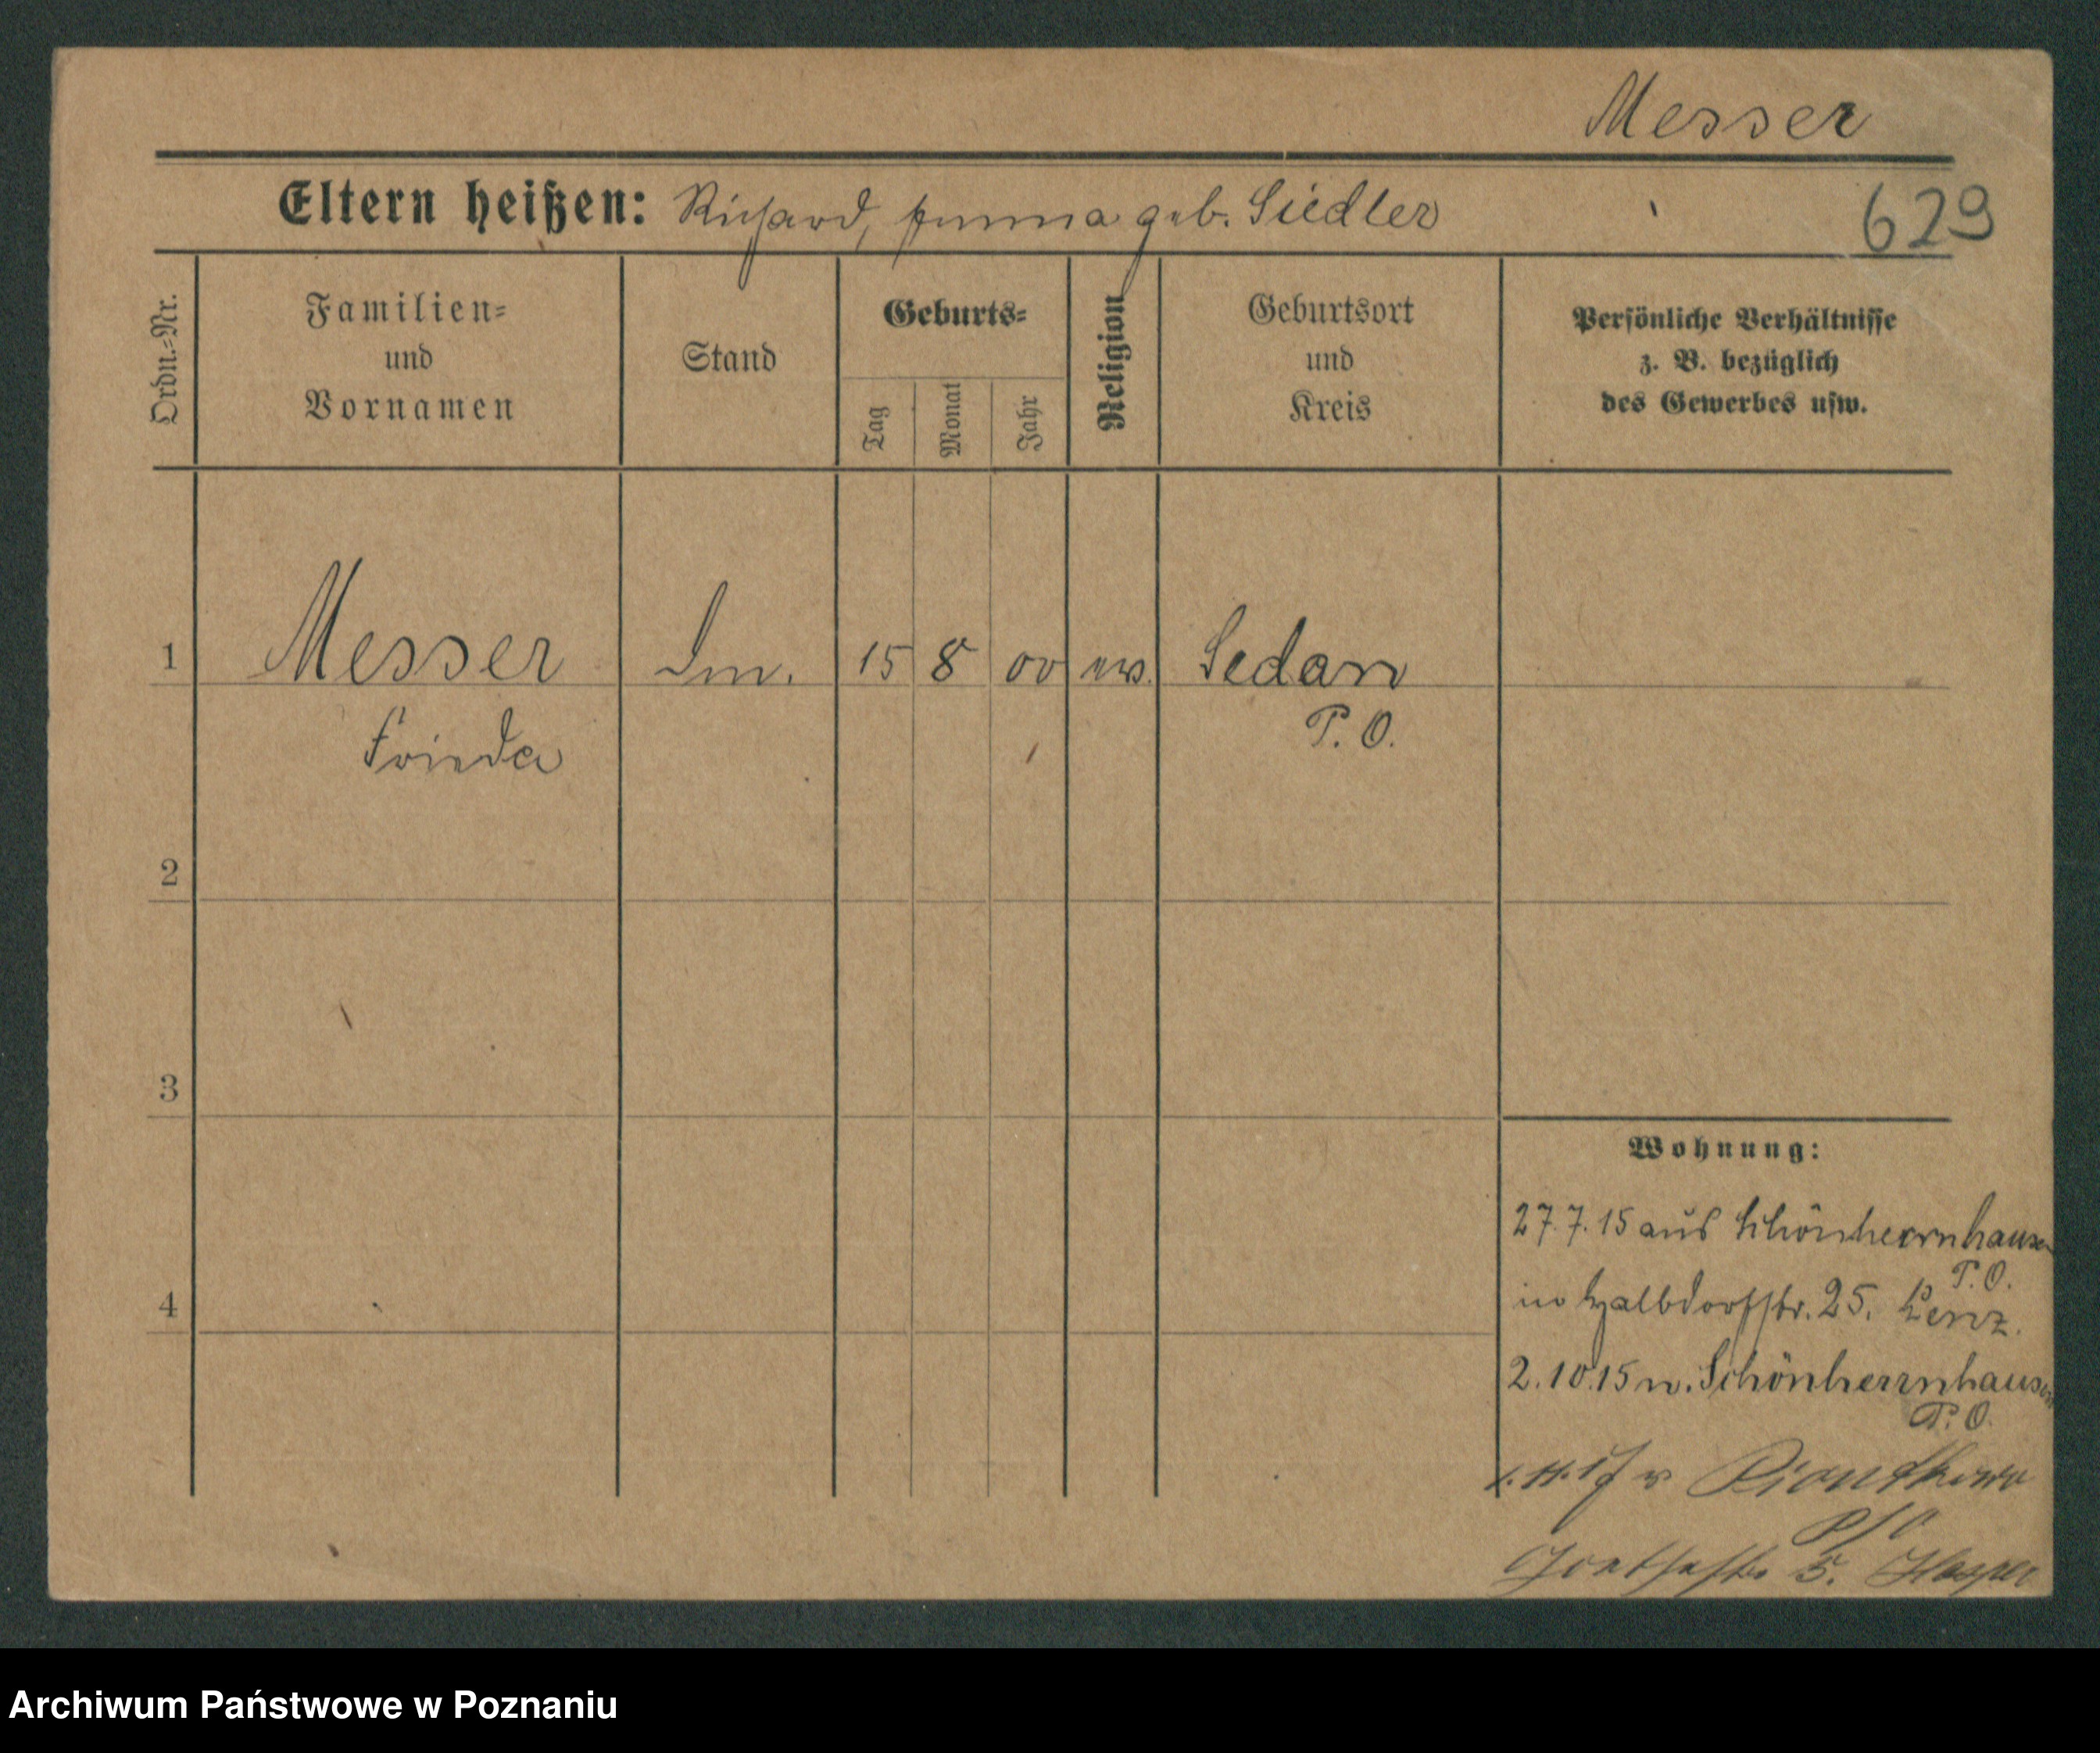 Messer
Eltern heißen: Richard, Emma geb. Siedler
629
Ordn.-Nr.
Familien-
und
Vornamen
Stand
Geburts-
Tag
Monat
Jahr
Religion
Geburtsort
und
Kreis
Persönliche Verhältnisse
z. B. bezüglich
des Gewerbes usw.
1 Messer 15 8 00 ev. Sedan
Frieda P. O.
2
3
Wohnung:
27.7.15 aus Schönherrnhausen
P. O.
4
in Halbdorfstr. 25. Lenz.
2.10.15 n. Schönherrnhausen
P. O.
Piontkowo
P/O
5.
Archiwum Państwowe w Poznaniu